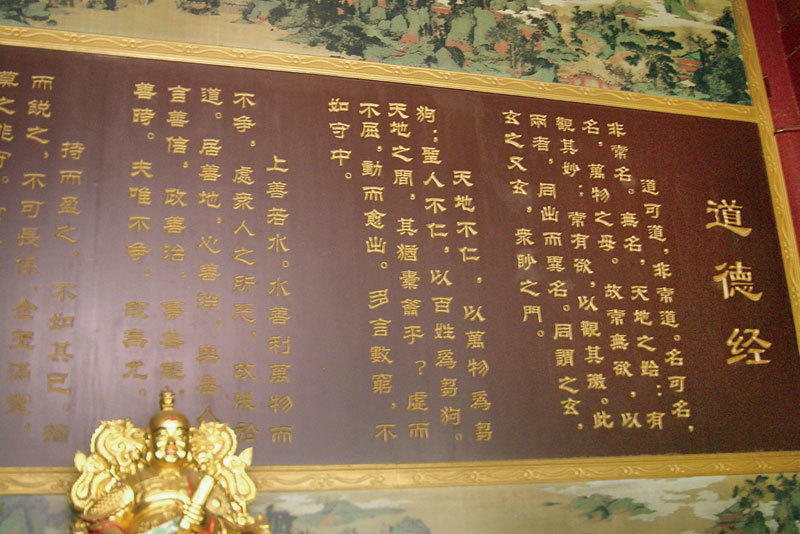 道德经
道可道，非常道。名可名，
非常名。無名，天地之始；有
名，萬物之母。故常無欲，以
觀其妙；常有欲，以觀其徼。此
兩者，同出而異名。同謂之玄，
玄之又玄，衆眇之門。
天地不仁，以萬物爲芻
狗；聖人不仁，以百姓爲芻狗。
天地之間，其猶橐籥乎？虛而
不屈，動而愈出。多言數窮，不
如守中。
上善若水。水善利萬物而
不争，處衆人之所惡，故幾於
道。居善地，心善淵，與善人
言善信，政善治，事善能，
善時。夫唯不争，故無尤。
持而盈之，不如其已。揣
而銳之，不可長保。金玉滿堂，
莫之能守。